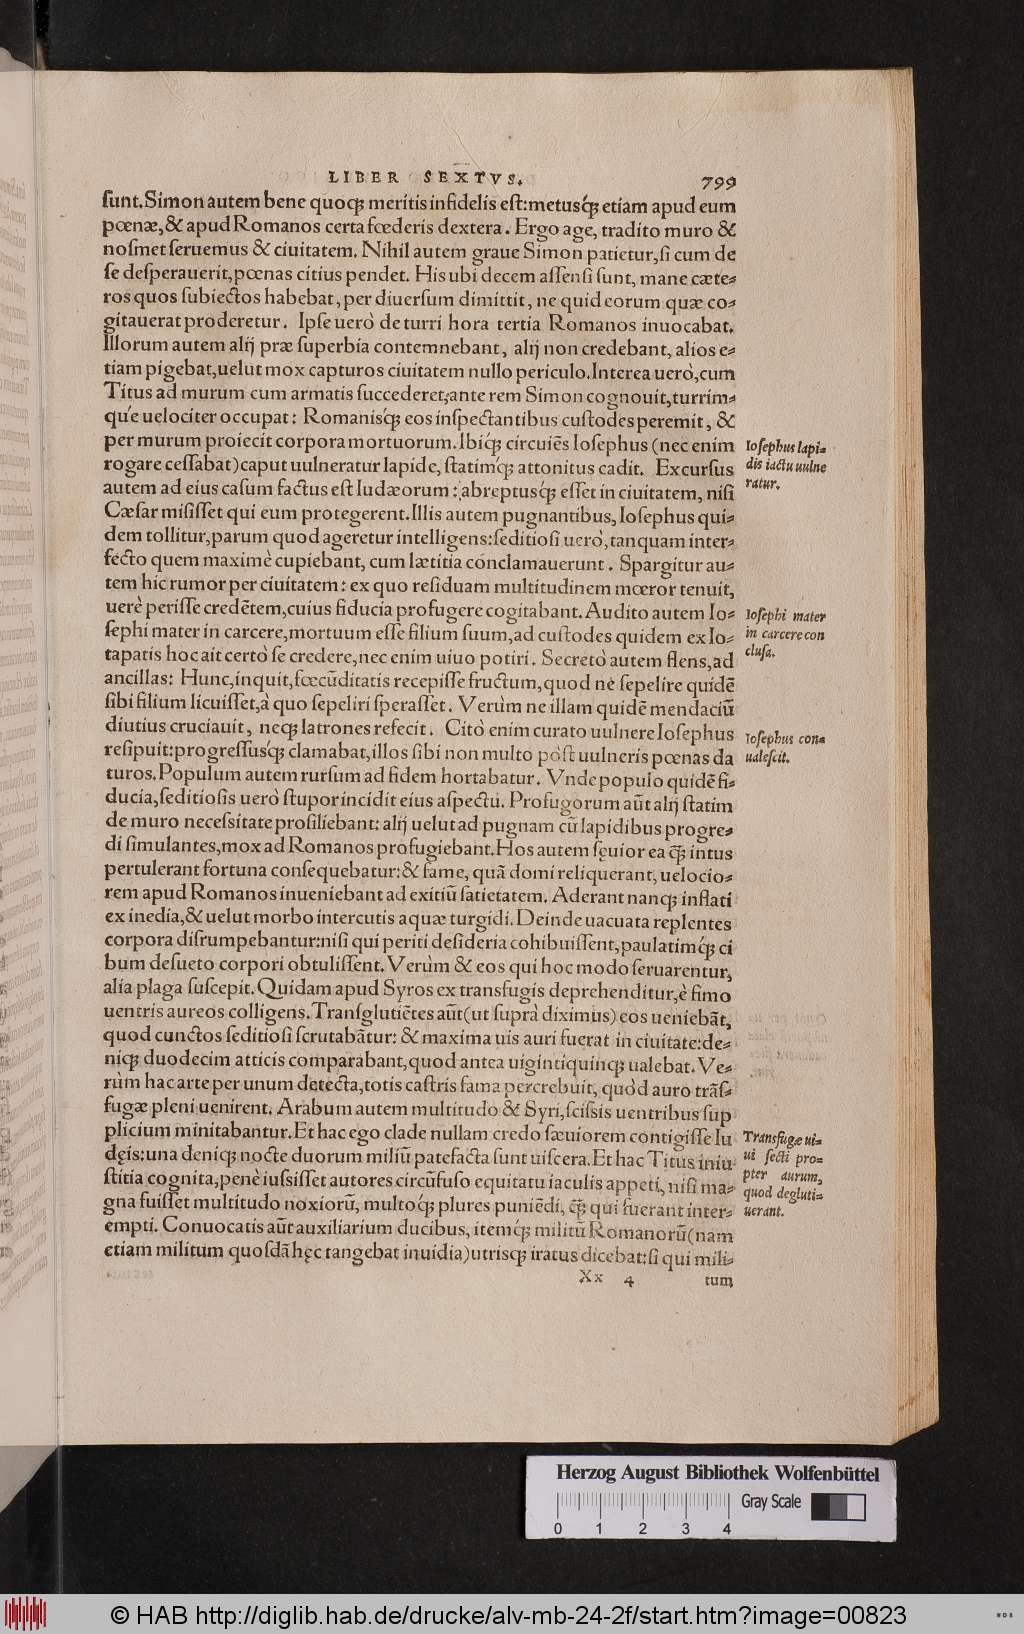 LIBER SEXTVS. 799
sunt. Simon autem bene quoq; meritis infidelis est: metusq́; etiam apud eum
pœnæ, & apud Romanos certa fœderis dextera. Ergo age, tradito muro &
nosmet seruemus & ciuitatem. Nihil autem graue Simon patietur, si cum de
se desperauerit, pœnas citius pendet. His ubi decem assensi sunt, mane cæte-
ros quos subiectos habebat, per diuersum dimittit, ne quid eorum quæ co-
gitauerat proderetur. Ipse uerò de turri hora tertia Romanos inuocabat.
Illorum autem alij præ superbia contemnebant, alij non credebant, alios e-
tiam pigebat, uelut mox capturos ciuitatem nullo periculo. Interea uerò, cum
Titus ad murum cum armatis succederet, ante rem Simon cognouit, turrim-
que uelociter occupat: Romanisq́; eos inspectantibus custodes peremit, &
per murum proiecit corpora mortuorum. Ibiq́; circuiẽs Iosephus (nec enim
rogare cessabat) caput uulneratur lapide, statimq́; attonitus cadit. Excursus
autem ad eius casum factus est Iudæorum: abreptusq́; esset in ciuitatem, nisi
Cæsar misisset qui eum protegerent. Illis autem pugnantibus, Iosephus qui-
dem tollitur, parum quod ageretur intelligens: seditiosi uerò, tanquam inter-
fecto quem maximè cupiebant, cum lætitia conclamauerunt. Spargitur au-
tem hic rumor per ciuitatem: ex quo residuam multitudinem mœror tenuit,
uerè perisse credẽtem, cuius fiducia profugere cogitabant. Audito autem Io-
sephi mater in carcere, mortuum esse filium suum, ad custodes quidem ex Io-
tapatis hoc ait certò se credere, nec enim uiuo potiri. Secretò autem flens, ad
ancillas: Hunc, inquit, fœcũditatis recepisse fructum, quod nè sepelire quidẽ
sibi filium licuisset, à quo sepeliri sperasset. Verùm ne illam quidẽ mendaciũ
diutius cruciauit, neq; latrones refecit. Citò enim curato uulnere Iosephus
resipuit: progressusq́; clamabat, illos sibi non multo pòst uulneris pœnas da
turos. Populum autem rursum ad fidem hortabatur. Vnde populo quidẽ fi-
ducia, seditiosis uerò stupor incidit eius aspectu. Profugorum aũt alij statim
de muro necessitate prosiliebant: alij uelut ad pugnam cũ lapidibus progre-
di simulantes, mox ad Romanos profugiebant. Hos autem sęuior ea q̃; intus
pertulerant fortuna consequebatur: & fame, quã domi reliquerant, uelocio-
rem apud Romanos inueniebant ad exitiũ satietatem. Aderant nanq; inflati
ex inedia, & uelut morbo intercutis aquæ turgidi. Deinde uacuata replentes
corpora disrumpebantur: nisi qui periti desideria cohibuissent, paulatimq́; ci
bum desueto corpori obtulissent. Verùm & eos qui hoc modo seruarentur,
alia plaga suscepit. Quidam apud Syros ex transfugis deprehenditur, è fimo
uentris aureos colligens. Transglutiẽtes aũt (ut suprà diximus) eos ueniebãt,
quod cunctos seditiosi scrutabãtur: & maxima uis auri fuerat in ciuitate: de-
niq; duodecim atticis comparabant, quod antea uigintiquinq; ualebat. Ve-
rùm hac arte per unum detecta, totis castris fama percrebuit, quòd auro trãs-
fugæ pleni uenirent. Arabum autem multitudo & Syri, scissis uentribus sup
plicium minitabantur. Et hac ego clade nullam credo sæuiorem contigisse Iu
dęis: una deniq; nocte duorum miliũ patefacta sunt uiscera. Et hac Titus iniu
stitia cognita, penè iussisset autores circũfuso equitatu iaculis appeti, nisi ma-
gna fuisset multitudo noxiorũ, multoq́; plures puniẽdi, q̃; qui fuerant inter-
empti. Conuocatis aũt auxiliarium ducibus, itemq́; militũ Romanorũ (nam
etiam militum quosdã hęc tangebat inuidia) utrisq; iratus dicebat: si qui mili-
Xx 4 tum
Iosephus lapi-
dis iactu uulne
ratur.
Iosephi mater
in carcere con
clusa.
Iosephus con-
ualescit.
Transfugæ ui-
ui secti pro-
pter aurum,
quod degluti-
uerant.
Herzog August Bibliothek Wolfenbüttel
Gray Scale
0 1 2 3 4
© HAB http://diglib.hab.de/drucke/alv-mb-24-2f/start.htm?image=00823